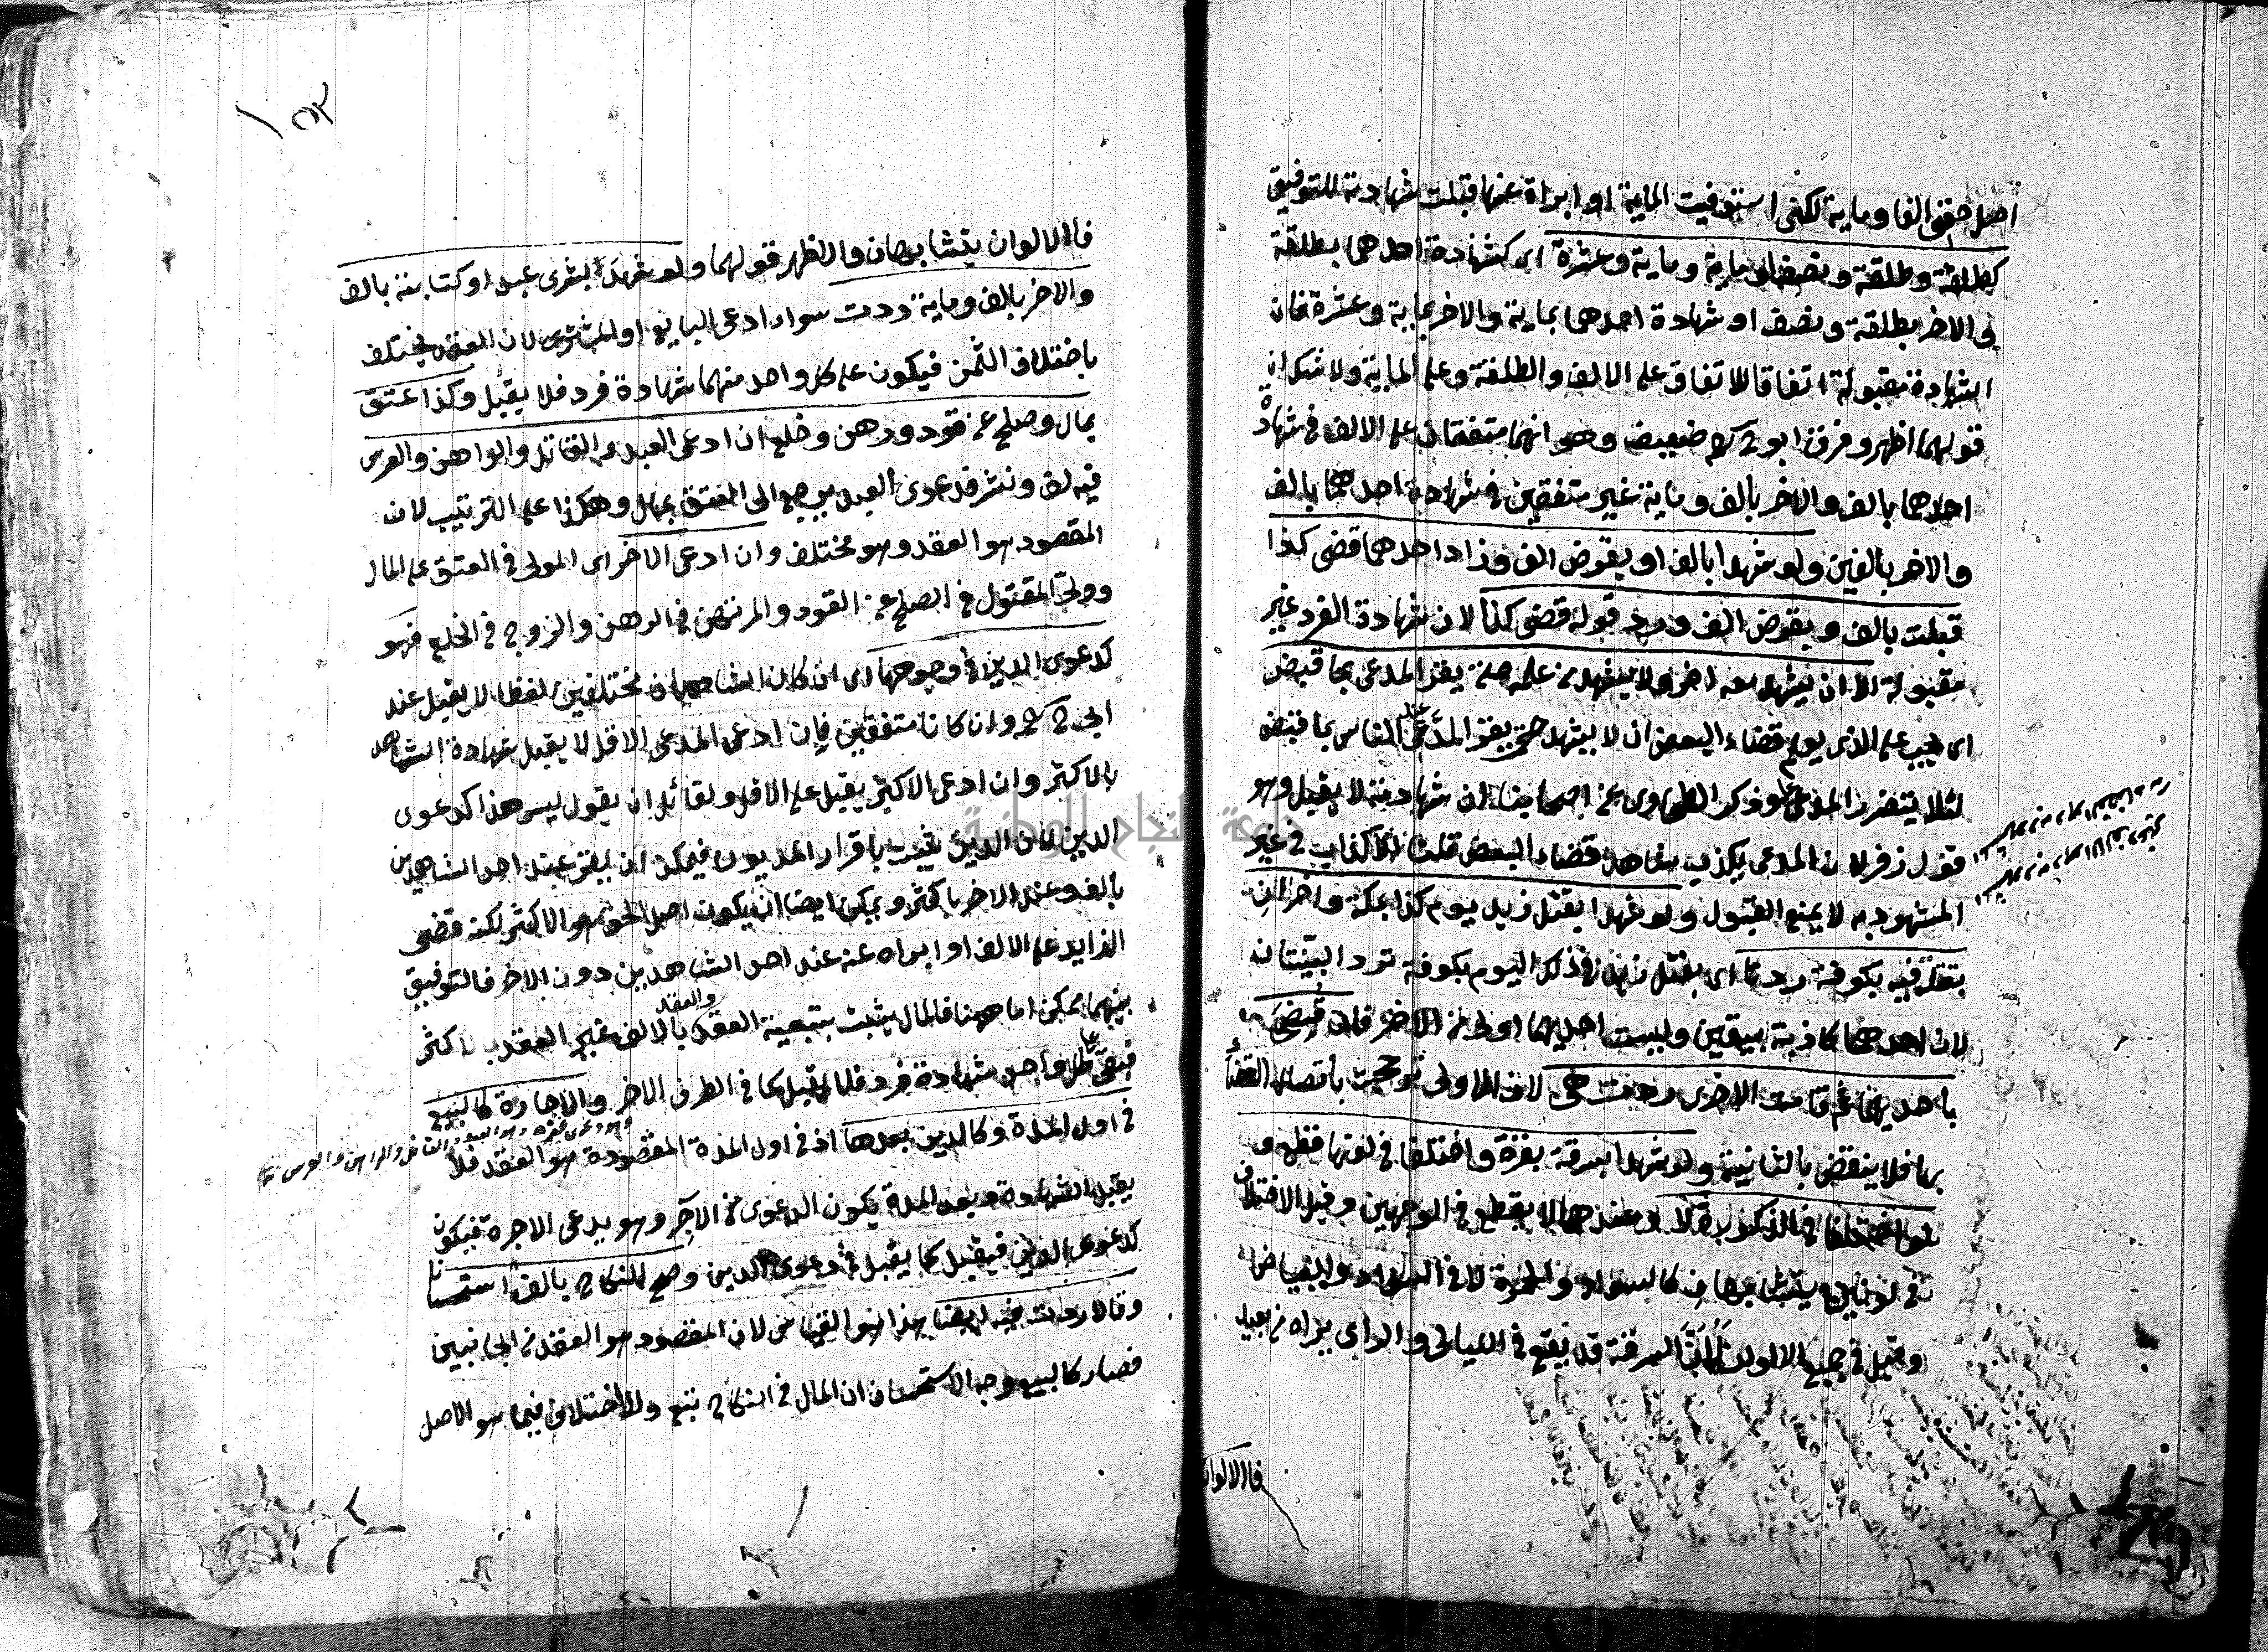 اصل حقى الفا وماية لكنى استوفيت الماية او ابراة عنها قبلت شهادته للتوفيق
كطلقة وطلقة ونصف او ماية وماية وعشرة اى كشهادة احدهما بطلقة
فى الاخر بطلقة ونصف او شهادة احدهما بماية والاخر بماية وعشرة فان
الشهادة مقبولة اتفاقا للاتفاق على الالف والطلقة وعلى الماية ولا شك ان
قولهما اظهر وفرق ابو ح رحم ضعيف وهو انهما متفقان على الالف فى شهادة
احدهما بالف والاخر بالف وماية غير متفقين فى شهادة احدهما بالف
والاخر بالفين ولو شهدا بالف او بقرض الف وزاد احدهما قضى كذا
قبلت بالف وبقرض الف ورد قوله قضى كذا لان شهادة الفرد غير
مقبولة الا ان يشهد معه اخر ولا يشهد من علم حتى يقر المدعى بما قبض
اى يجب على الذى يعلم قضاء البعض ان لا يشهد حتى يقر المدعى عند الناس بما قبض
لئلا يتضرر المدعى عليه وذكر الطحاوى عن اصحابنا ان شهادته لا يقبل وهو
قول زفر لان المدعى يكذب شاهد قضاء البعض قلنا الاكذاب فى غير
المشهود به لا يمنع القبول ولو شهدا بقتل زيد يوم كذا بمكة واخران
بقتله فيه بكوفة ردتا اى بقتل زيد فى ذلك اليوم بكوفة ترد البينتان
لان احدهما كاذبة بيقين وليست احديهما اولى من الاخر فان قضى
باحديهما ثم قامت الاخرى ردت هى لان الاولى ترجحت باتصال القضاء
بها فلا ينقض بالثانية ولو شهدا بسرقة بقرة واختلفا فى لونها قطع و
لو اختلفا فى الذكورة لا وعندهما لا يقطع فى الوجهين وقيل الاختلاف
فى لونين يتشابهان كالسواد والحمرة لا فى السواد والبياض
وقيل فى جميع الالوان له ان السرقة قد تقع فى الليالى والرائى يراه من بعيد
فاالالوان
١٥٢
فاالالوان يتشابهان والاظهر قولهما ولو شهدا بشرى عبد او كتابته بالف
والاخر بالف وماية ردت سواء ادعى البايع او المشترى لان العقد يختلف
باختلاف الثمن فيكون على كل واحد منهما شهادة فرد فلا يقبل وكذا عتق
بمال وصلح عن قود ورهن وخلع ان ادعى العبد والقاتل والراهن والعرس
فيه لف ونشر فدعوى العبد يرجع الى العتق بمال وهكذا على الترتيب لان
المقصود هو العقد وهو مختلف وان ادعى الاخر اى المولى فى العتق على المال
وولى المقتول فى الصلح عن القود والمرتهن فى الرهن والزوج فى الخلع فهو
كدعوى الدين فى وجوهها اى ان كان الشاهدان مختلفين لفظا لا يقبل عند
ابى ح رح وان كانا متفقين فان ادعى المدعى الاقل لا يقبل شهادة الشاهد
بالاكثر وان ادعى الاكثر يقبل على الاقل ولقائل ان يقول ليس هذا كدعوى
الدين لان الدين يثبت باقرار المديون فيمكن ان يقر عند احد الشاهدين
بالف وعند الاخر باكثر ويمكن ايضا ان يكون اصل الحق هو الاكثر لكنه قضى
الزايد على الالف او ابراه عنه عند احد الشاهدين دون الاخر فالتوفيق
بينهما ممكن اما ههنا فالمال يثبت بتبعية العقد والعقد بالالف غير العقد بالاكثر
فعلى كل واحد شهادة فرد فلا يقبل كما فى الطرف الاخر والاجارة كالبيع
فى اول المدة وكالدين بعدها اذ فى اول المدة المقصودة هو العقد فلا
يقبل الشهادة وبعد المدة يكون الدعوى من الآجر وهو يدعى الاجرة فيكون
كدعوى الدين فيقبل كما يقبل فى دعوى الدين وصح النكاح بالف استحسانا
وقالا ردت فيه ايضا هذا هو القياس لان المقصود هو العقد من الجانبين
فصار كالبيع وجه الاستحسان ان المال فى النكاح تبع ولا اختلاف فيما هو الاصل